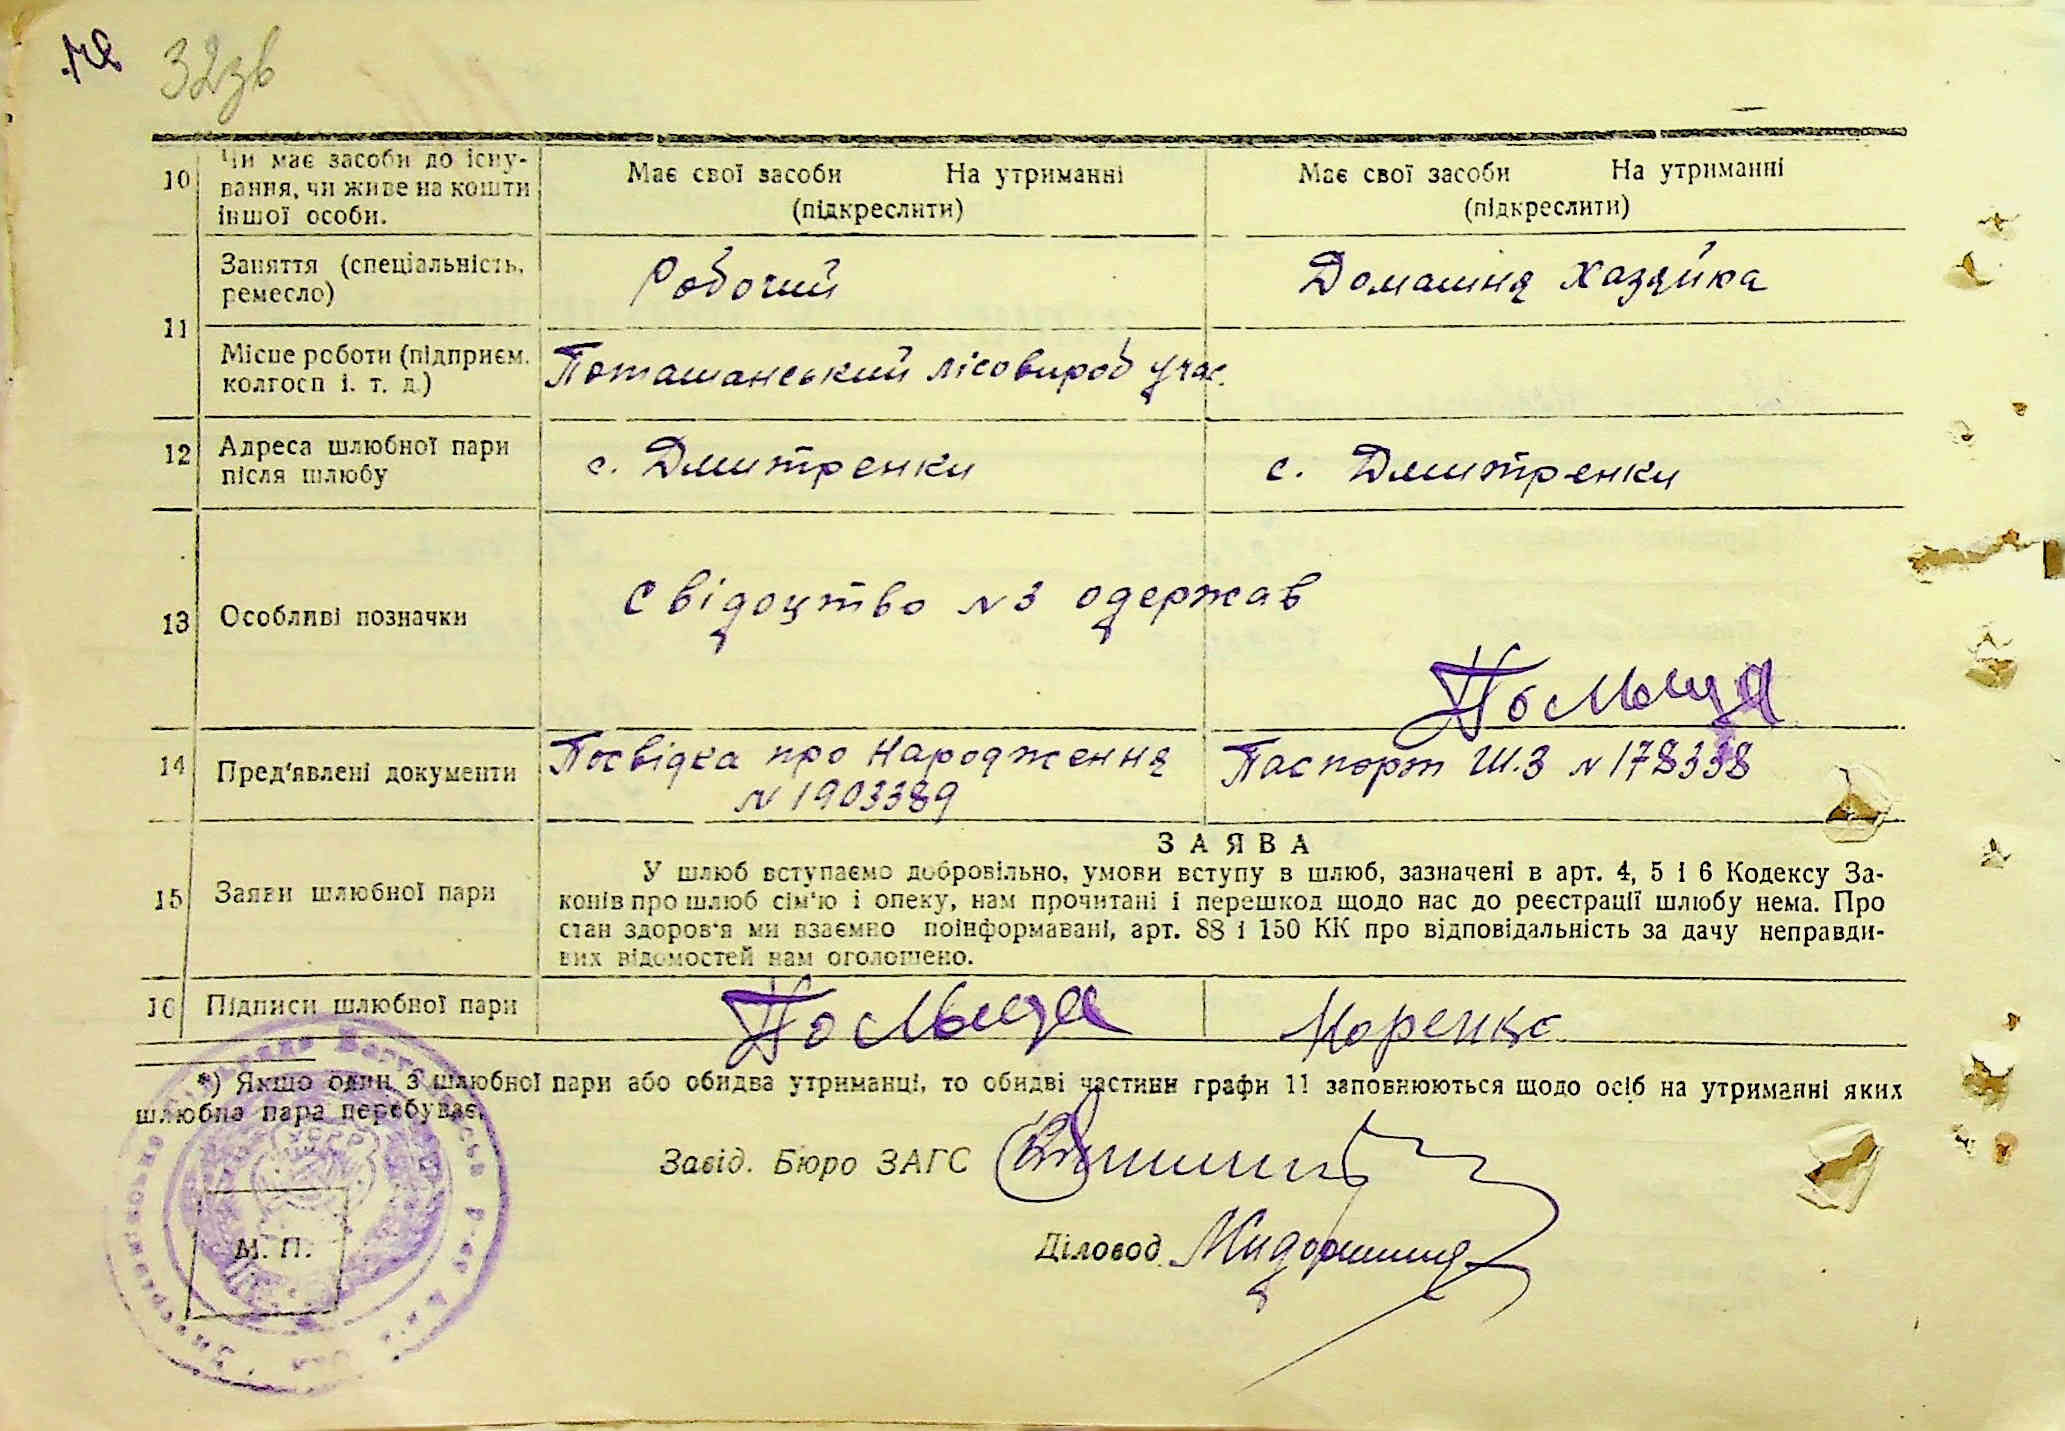 32зв
10 Чи має засоби до існу-
вання, чи живе на кошти
іншої особи.
Має свої засоби На утриманні
(підкреслити)
Має свої засоби На утриманні
(підкреслити)
11 Заняття (спеціальність,
ремесло)
Робочий
Домашня Хазяйка
Місце роботи (підприєм.
колгосп і. т. д.)
Поташанський лісовироб учас.
12 Адреса шлюбної пари
після шлюбу
с. Дмитренки
с. Дмитренки
13 Особливі позначки
Свідоцтво №3 одержав
Посмыця
14 Пред'явлені документи
Посвідка про Народження
№ 1903389
Паспорт Ш.З № 178338
15 Заяви шлюбної пари
ЗАЯВА
У шлюб вступаємо добровільно, умови вступу в шлюб, зазначені в арт. 4, 5 і 6 Кодексу За-
конів про шлюб сім'ю і опеку, нам прочитані і перешкод щодо нас до реєстрації шлюбу нема. Про
стан здоров'я ми взаємно поінформавані, арт. 88 і 150 КК про відповідальність за дачу неправди-
вих відомостей нам оголошено.
16 Підписи шлюбної пари
Моренко
*) Якщо один з шлюбної пари або обидва утриманці, то обидві частини графи 11 заповнюються щодо осіб на утриманні яких
шлюбна пара перебуває.
Завід. Бюро ЗАГС
Діловод
М. П.
УСРР